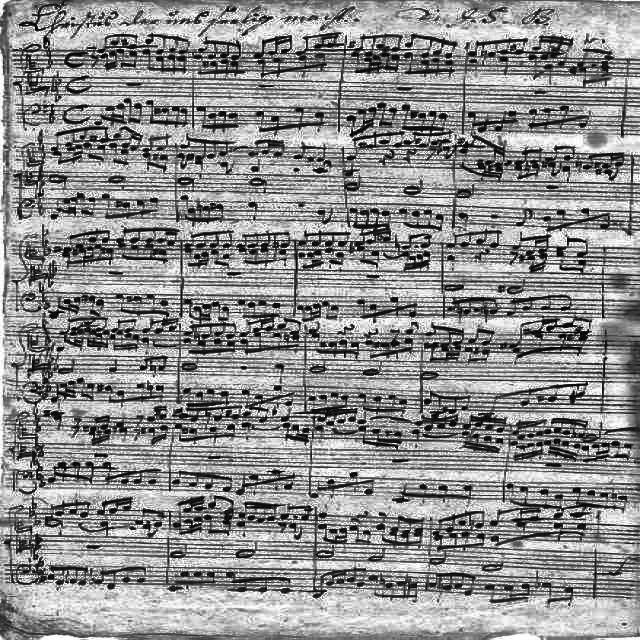 Christus der uns seelig macht. Di J. S. B.